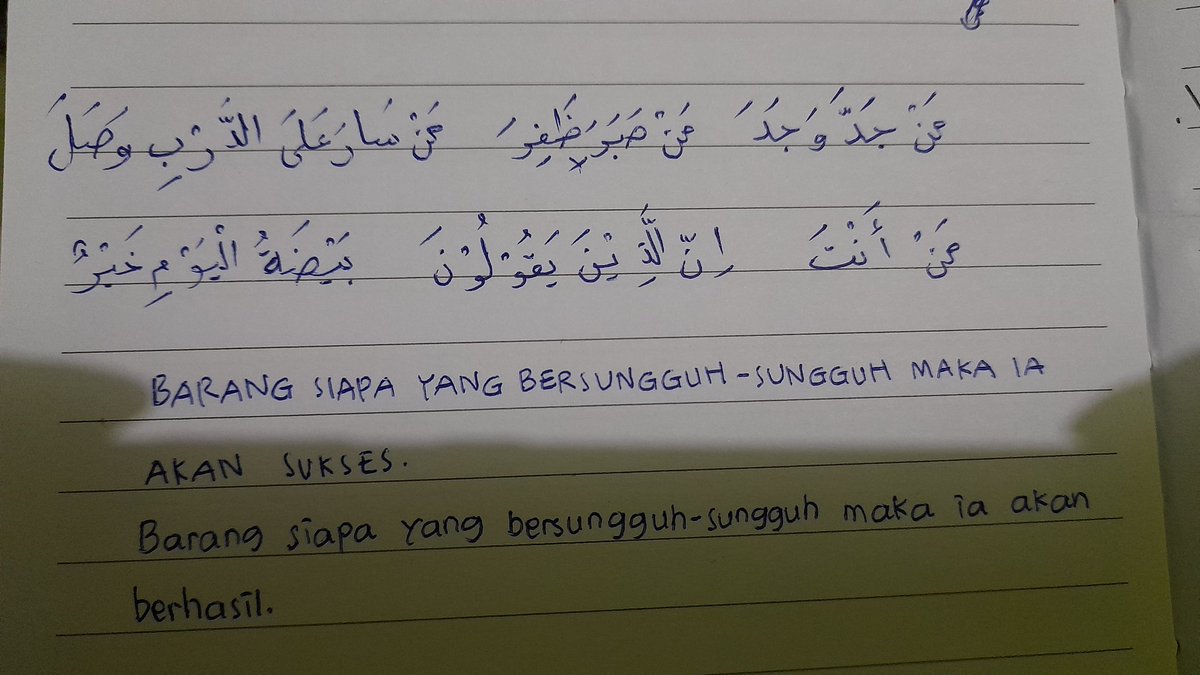 مَنْ جَدَّ وَجَدَ مَنْ صَبَرَ ظَفِرَ مَنْ سَارَ عَلَى الدَّرْبِ وَصَلَ
مَنْ أَنْتَ اِنَّ الَّذِيْنَ يَقُوْلُوْنَ بَيْضَةُ الْيَوْمِ خَيْرٌ
BARANG SIAPA YANG BERSUNGGUH-SUNGGUH MAKA IA
AKAN SUKSES.
Barang siapa yang bersungguh-sungguh maka ia akan
berhasil.